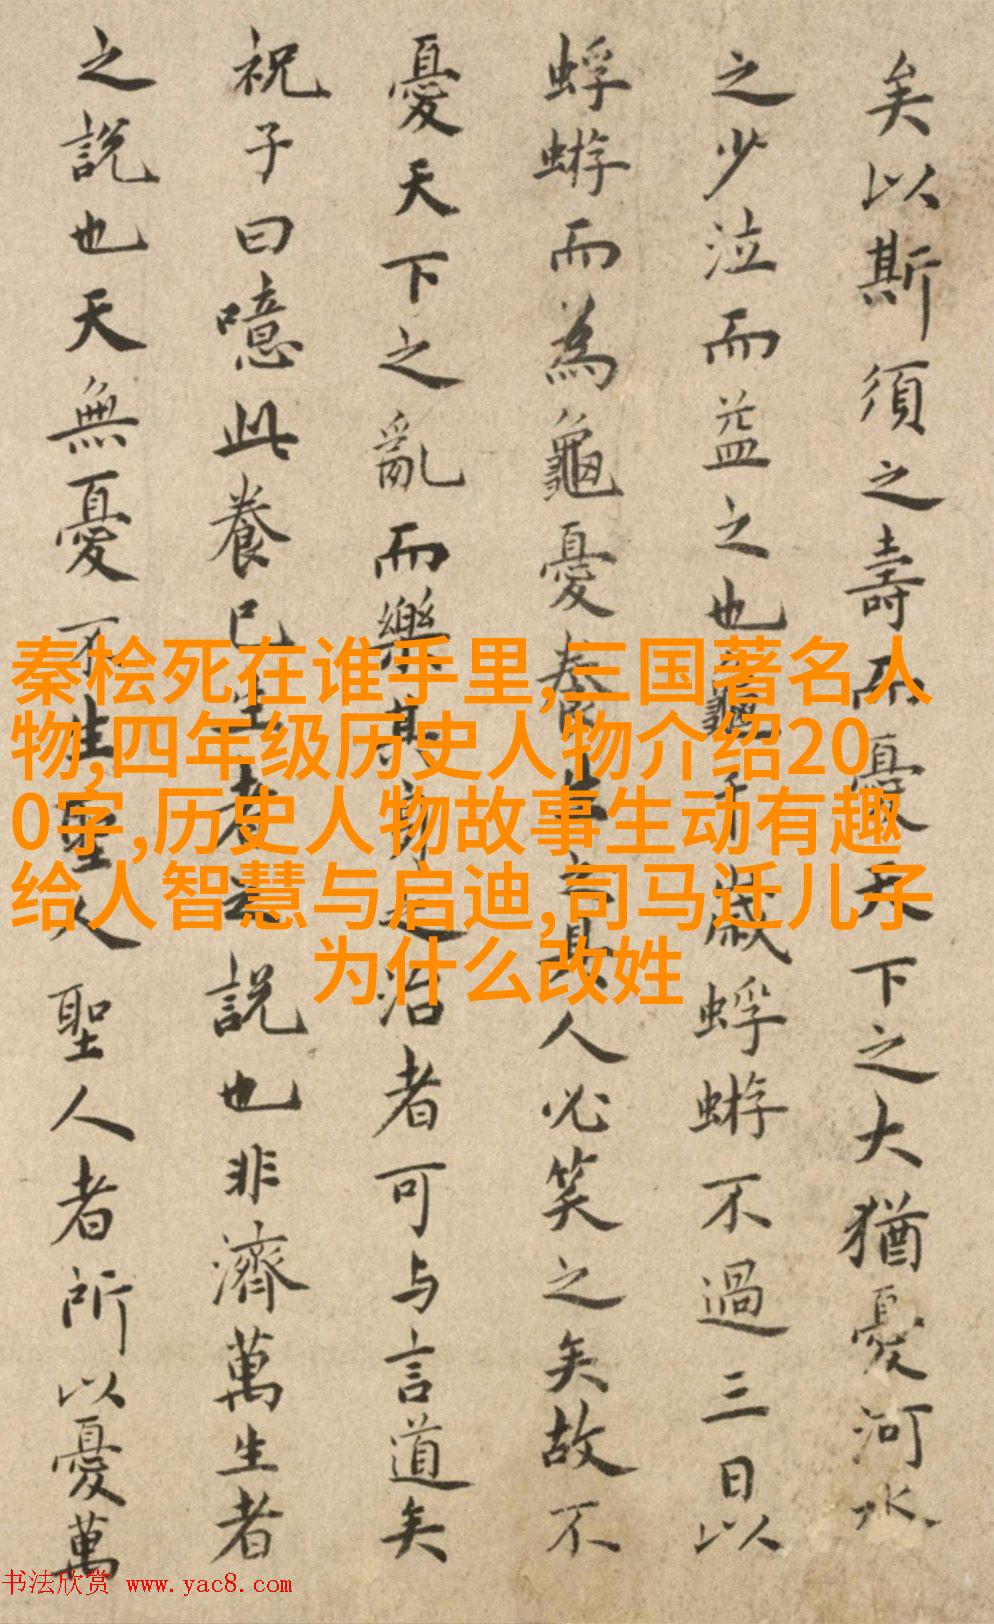 矣以斯須之壽而憂天下之大猶憂河水
之少泣而益之也龜千歲蜉蝣不過三日以
蜉蝣而為龜憂養生之具人必笑之矣故不
憂天下之亂而樂其身之治者可与言道矣
祝子曰噫此養已生者之說也非濟萬生者
之說也天無憂不生聖人聖人者所以憂萬
秦桧死在谁手里,三国著名人
物,四年级历史人物介绍20
0字,历史人物故事生动有趣
给人智慧与启迪,司马迁儿子
为什么改姓
书法欣赏 www.yac8.com